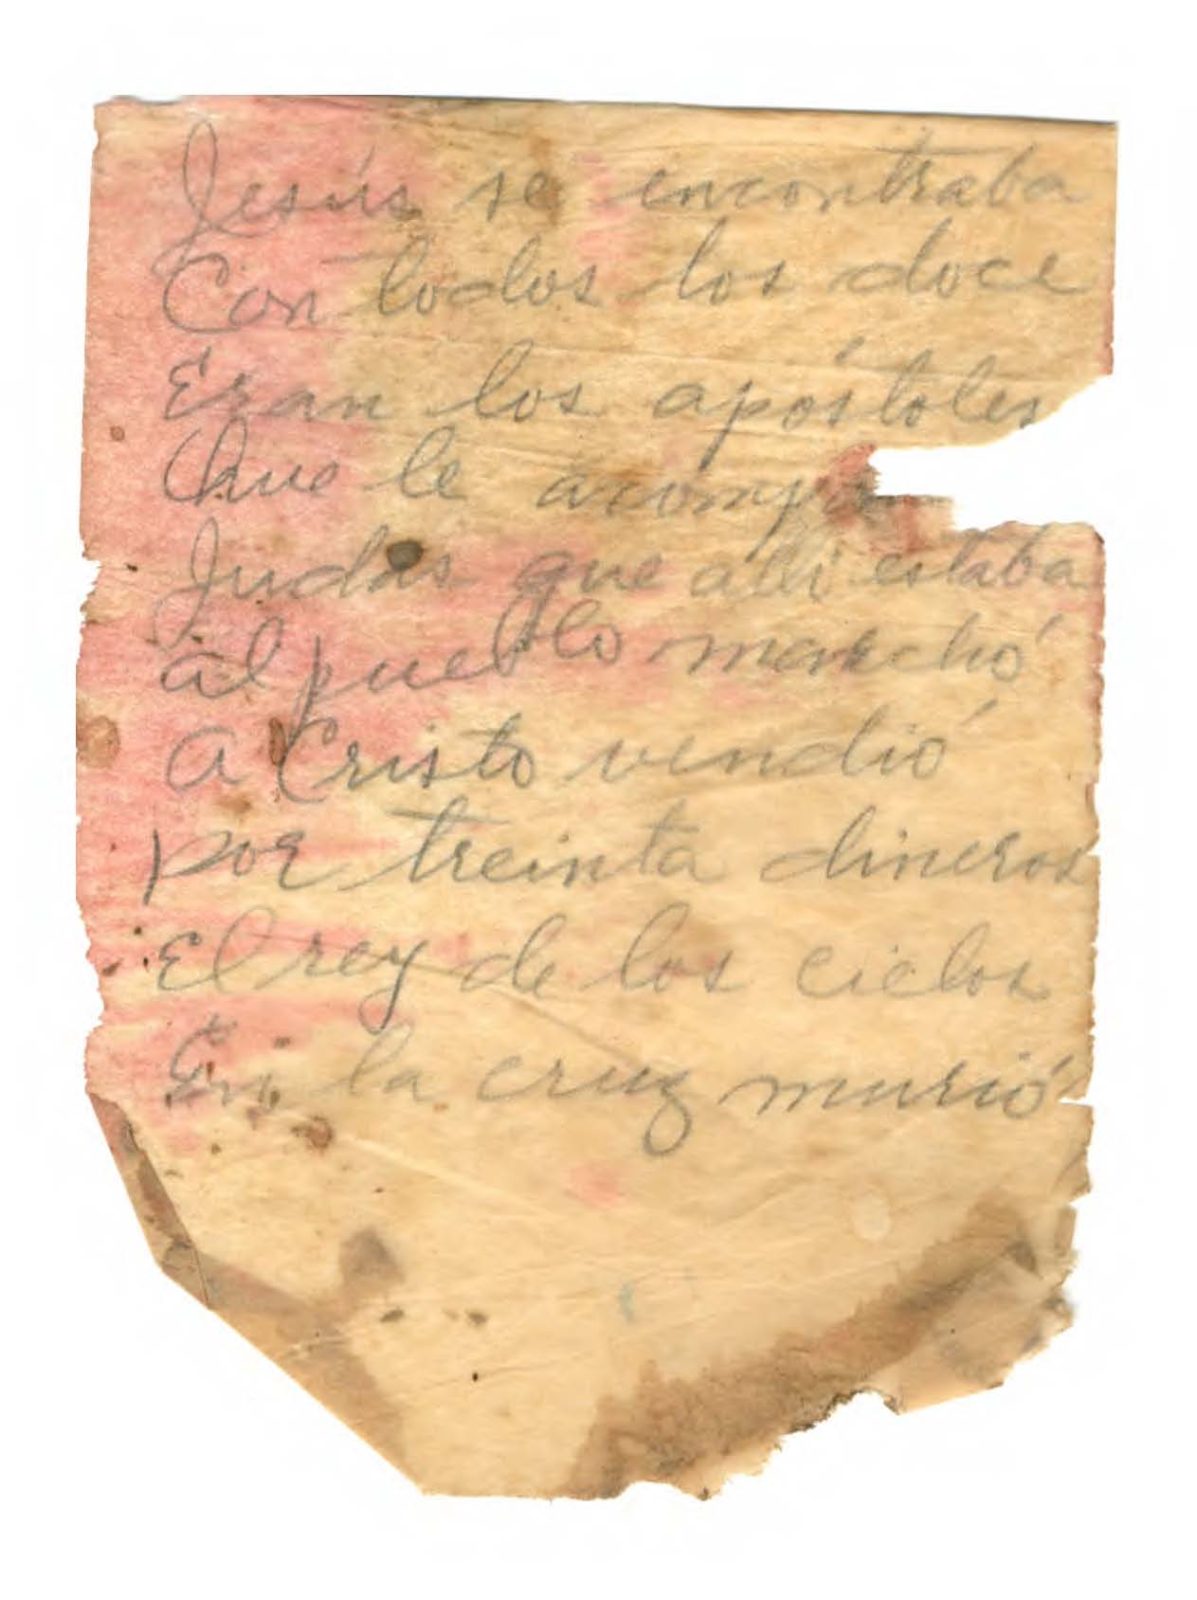 Jesús se encontraba
Con todos los doce
Eran los apóstoles
Que le
Judas que allí estaba
al pueblo marchó
a Cristo vendió
por treinta dineros
El rey de los cielos
En la cruz murió